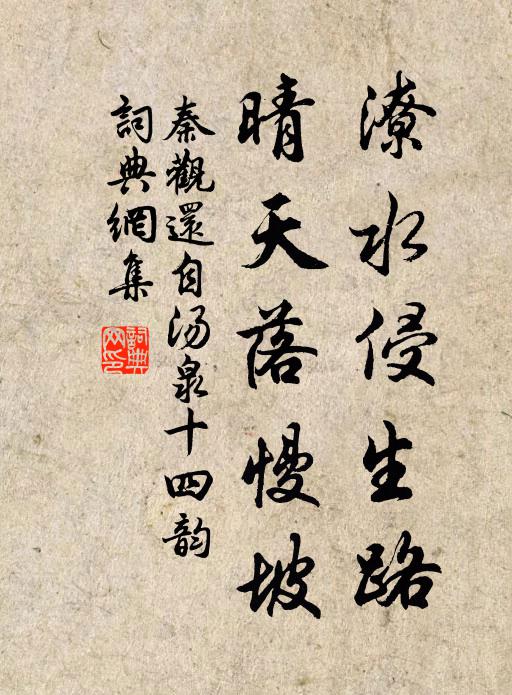 潦水侵生路
晴天落慢坡
秦觀還自汤泉十四韵
詞典網集
詞典
网印